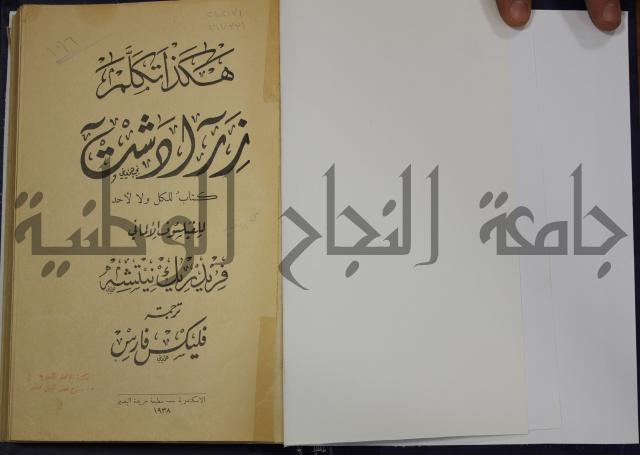 هكذا تكلّم
زرآدشت
كتاب للكل ولا لاحد
للفيلسوف الألماني
فريدريك نيتشه
ترجمة
فليكس فارس
الاسكندرية — مطبعة جريدة البصير
١٩٣٨
جامعة النجاح الوطنية